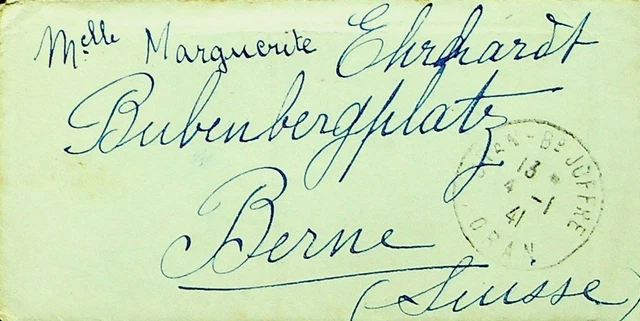 Melle Marguerite Ehrhardt
Bubenbergplatz
Berne
(Suisse)
ORAN - Bd JOFFRE
13 *
4 -1
41
ORAN